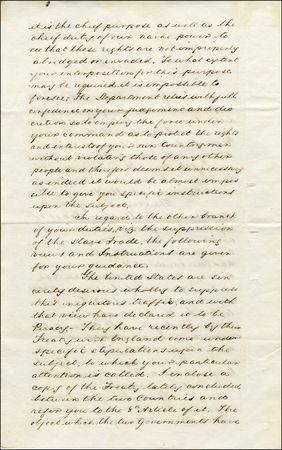 it is the chief purpose as well as the
chief duty of our naval power to
see that these rights are not improperly
abridged or invaded. To what extent
your interposition for this purpose
may be required it is impossible to
foresee. The Department relies with full
confidence on your judgement and dis
cretion so to employ the force under
your command as to protect the rights
and interests of your own Countrymen
without violating those of any other
people and therefore deems it unnecessary
as indeed it would be almost impos
sible to give you specific instructions
upon the subject.
In regard to the other branch
of your duties, viz. the suppression
of the Slave Trade, the following
views and Instructions are given
for your guidance.
The United States are sin
cerely desirous wholly to suppress
this iniquitous traffic, and with
that view have declared it to be
Piracy. They have recently by their
Treaty with England come under
specific stipulations upon the
subject, to which your particular
attention is called. I enclose a
copy of the Treaty lately concluded
between the two Countries and
refer you to the 8th Article of it. The
object which the two Governments have